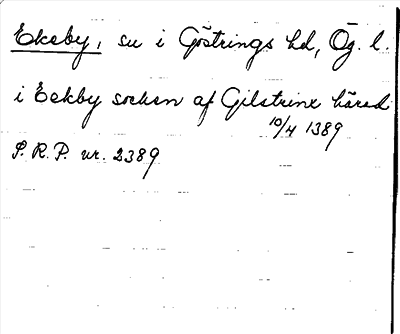 Ekeby, su i Göstrings hd, Ög. l.
i Eekby sochen af Gilstrinx härad
10/4 1389
S.R.P. nr. 2389